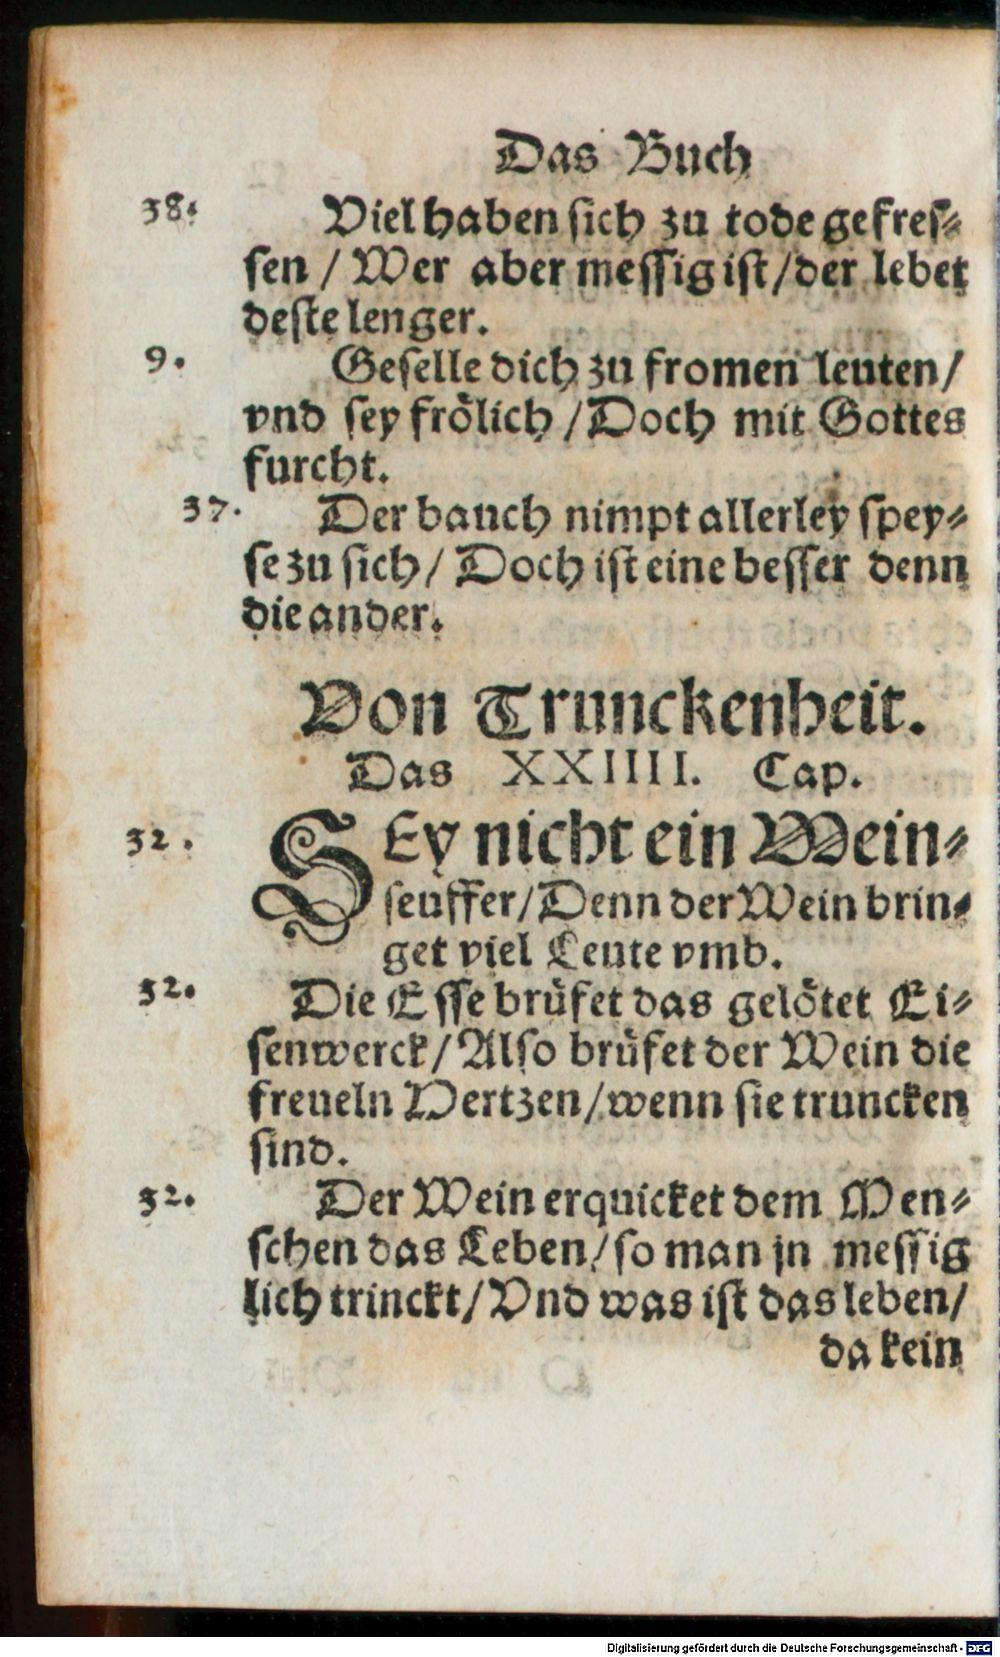 Das Buch
38. Viel haben sich zu tode gefres⸗
sen / Wer aber messig ist/der lebet
deste lenger.
9. Geselle dich zu fromen leuten/
vnd sey frölich /Doch mit Gottes
furcht.
37. Der bauch nimpt allerley spey⸗
se zu sich/ Doch ist eine besser denn
die ander.
Von Trunckenheit.
Das XXIIII. Cap.
32. SEy nicht ein Wein⸗
seuffer/Denn der Wein brin⸗
get viel Leute vmb.
32. Die Esse brüfet das gelötet Ei⸗
senwerck/Also brüfet der Wein die
freueln Hertzen/wenn sie truncken
sind.
32. Der Wein erquicket dem Men⸗
schen das Leben/so man jn messig
lich trinckt/Vnd was ist das leben/
da kein
Digitalisierung gefördert durch die Deutsche Forschungsgemeinschaft - DFG